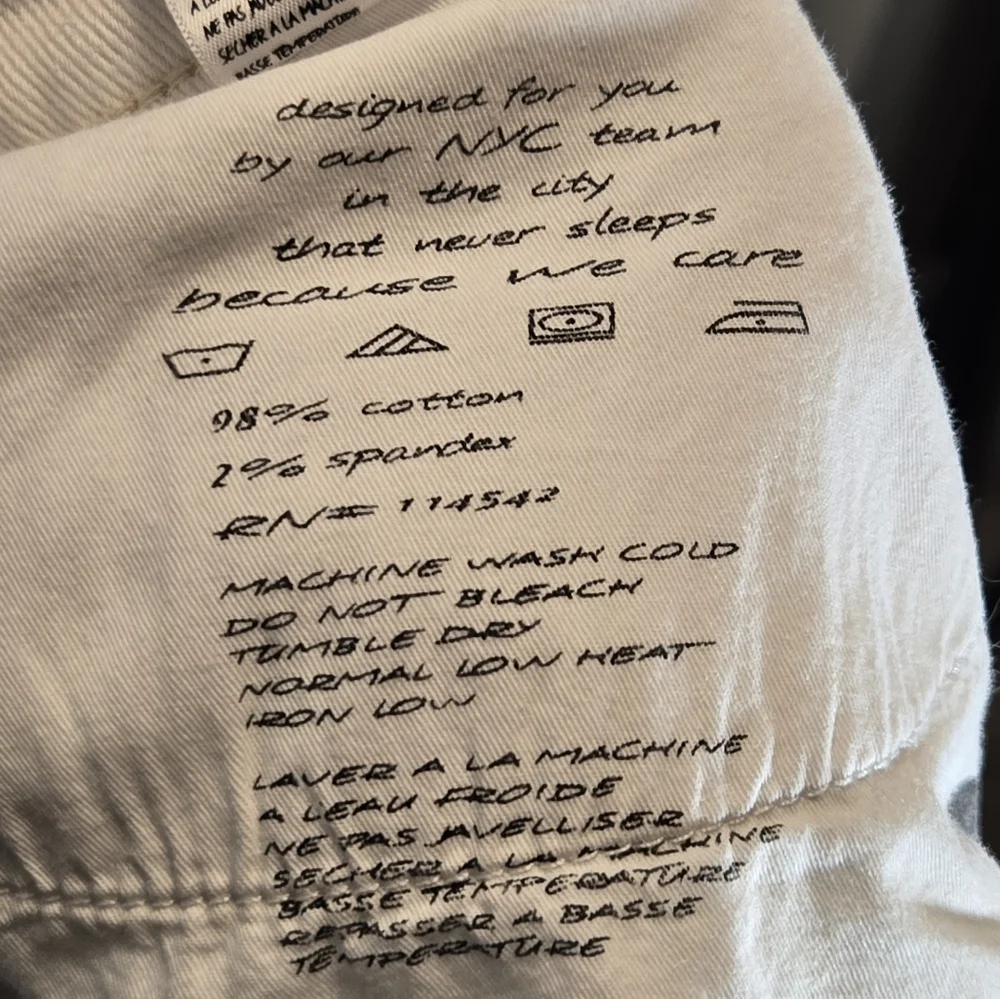 NE PAS
SECHER A LA MACHINE
BASSE TEMPERATURE
designed for you
by our NYC team
in the city
that never sleeps
because we care
98% cotton
2% spandex
RN# 114542
MACHINE WASH COLD
DO NOT BLEACH
TUMBLE DRY
NORMAL LOW HEAT
IRON LOW
LAVER A LA MACHINE
A LEAU FROIDE
NE PAS JAVELLISER
SECHER A LA MACHINE
BASSE TEMPERATURE
REPASSER A BASSE
TEMPERATURE